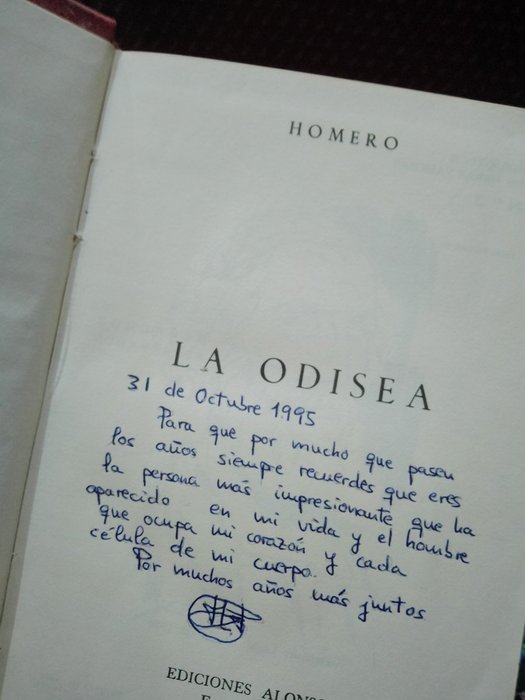 HOMERO
LA ODISEA
31 de Octubre 1995
Para que por mucho que pasen
los años siempre recuerdes que eres
la persona más impresionante que ha
aparecido en mi vida y el hombre
que ocupa mi corazón y cada
célula de mi cuerpo.
Por muchos años más juntos
EDICIONES ALONSO